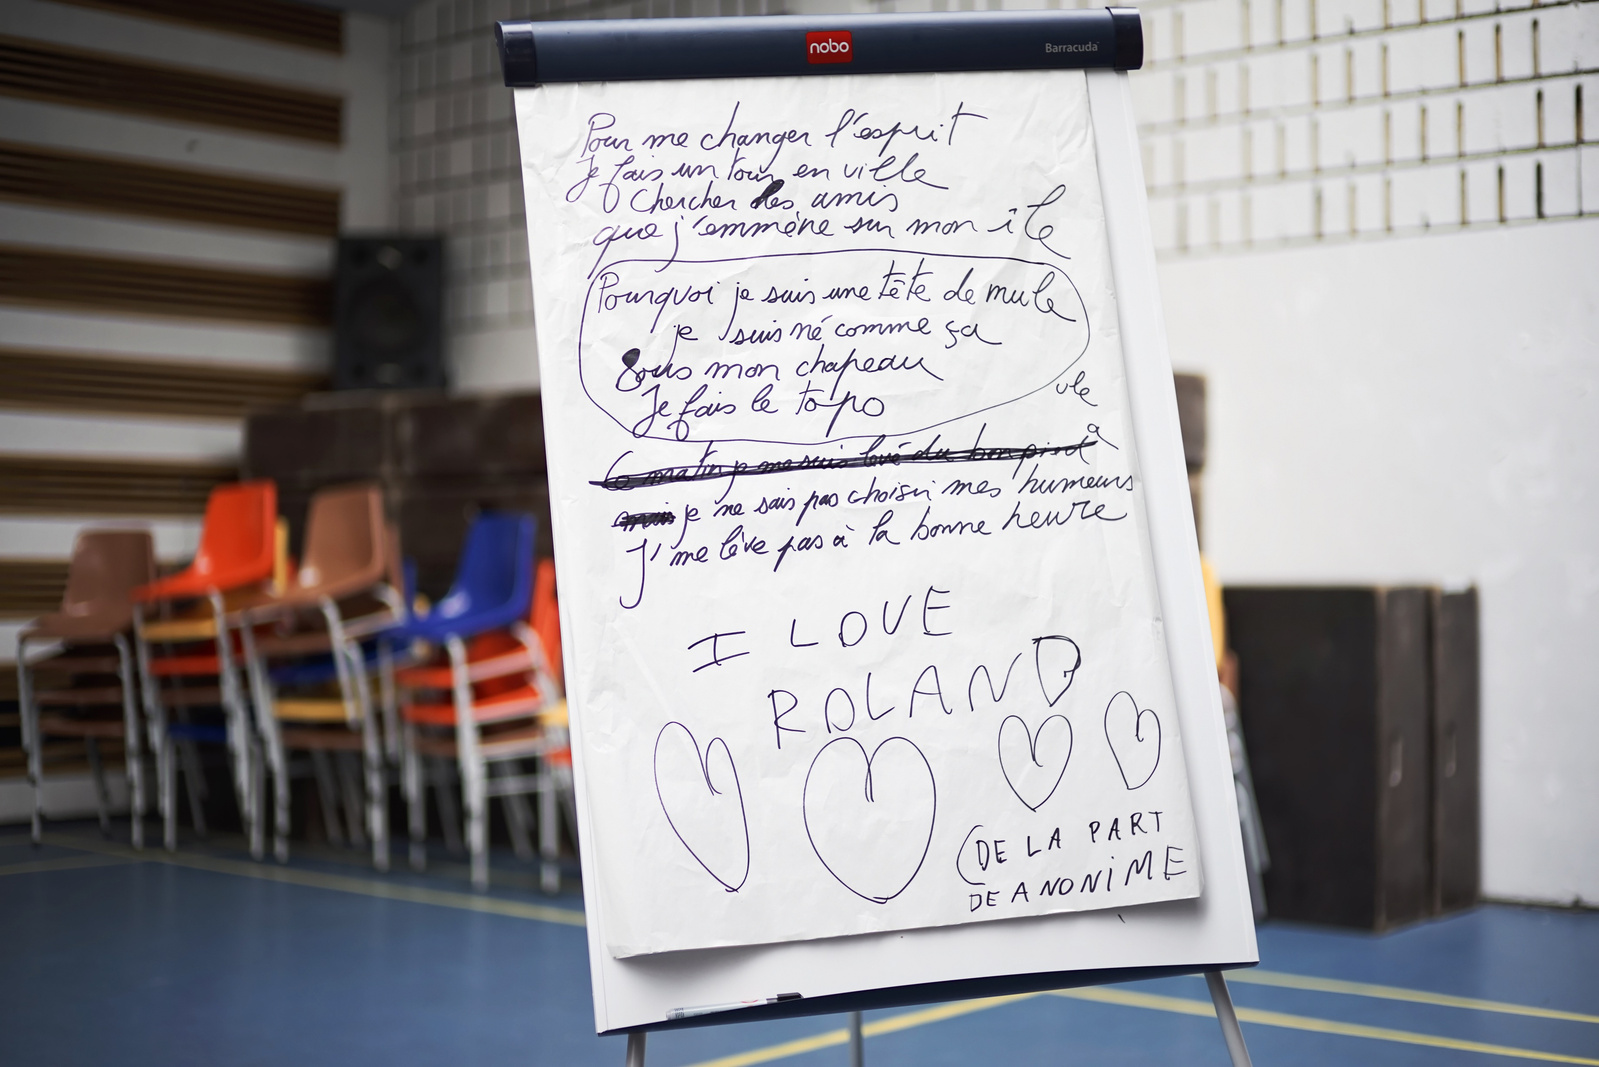 nobo
Barracuda
Pour me changer l'esprit
Je fais un tour en ville
Chercher des amis
que j'emmène sur mon île
Pourquoi je suis une tête de mule
je suis né comme ça
Sous mon chapeau
Je fais le topo
ule
a
Ce matin je me suis levé du bon pied
mais je ne sais pas choisir mes humeurs
J'me lève pas à la bonne heure
I LOVE
ROLAND
(DE LA PART
DE ANONiME